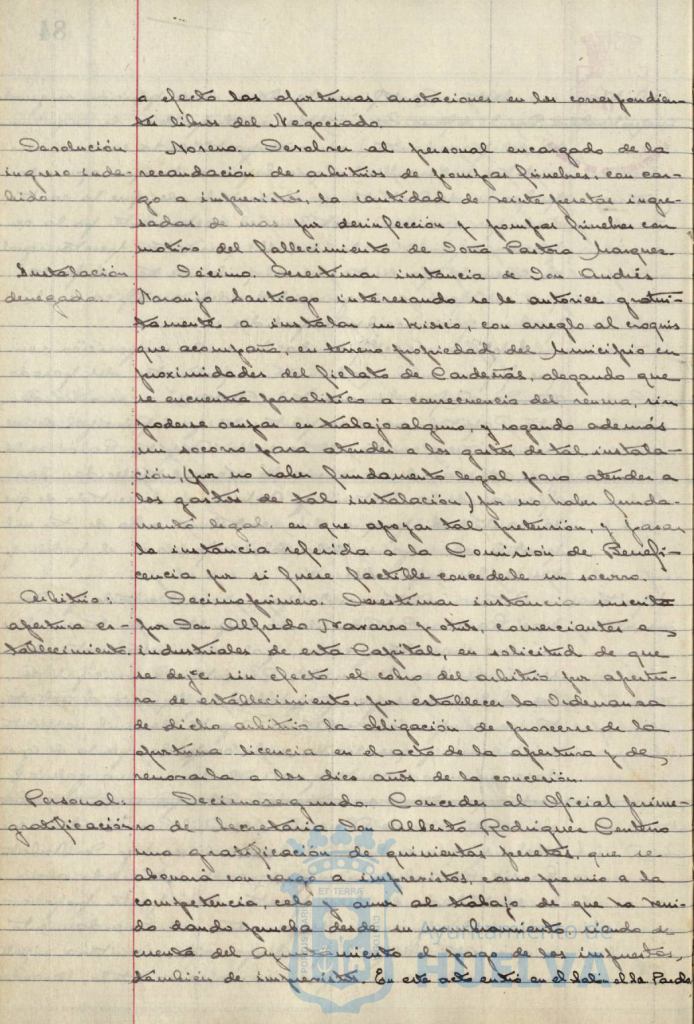 a efecto las oportunas anotaciones en los correspondien-
tes libros del Negociado.
Devolución
ingreso inde-
bido.
Noveno. Devolver al personal encargado de la
recaudación de arbitrios de pompas fúnebres, con car-
go a imprevistos, la cantidad de siete pesetas ingre-
sadas de mas por desinfección y pompas fúnebres con
motivo del fallecimiento de Doña Pastora Marquez.
Instalación
denegada.
Décimo. Desestimar instancia de Don Andrés
Naranjo Santiago interesando se le autorice gratui-
tamente a instalar un kiosco, con arreglo al croquis
que acompaña, en terreno propiedad del Municipio en
proximidades del fielato de Cardeñas, alegando que
se encuentra paralitico a consecuencia del reuma, sin
poderse ocupar en trabajo alguno, y rogando además
un socorro para atender a los gastos de tal instala-
ción, (por no haber fundamento legal para atender a
los gastos de tal instalación) por no haber funda-
mento legal, en que apoyar tal pretensión, y pasar
la instancia referida a la Comisión de Benefi-
cencia por si fuese factible concederle un socorro.
Arbitrio:
apertura es-
tablecimiento.
Decimoprimero. Desestimar instancia suscrita
por Don Alfredo Navarro y otros, comerciantes e
industriales de esta Capital, en solicitud de que
se deje sin efecto el cobro del arbitrio por apertu-
ra de establecimiento, por establecer la Ordenanza
de dicho arbitrio la obligación de proveerse de la
oportuna licencia en el acto de la apertura y de
renovarla a los diez años de la concesión.
Personal:
gratificación
Decimosegundo. Conceder al Oficial prime-
ro de Secretaria Don Alberto Rodriguez Centeno
una gratificación de quinientas pesetas, que se
abonará con cargo a imprevistos, como premio a la
competencia, celo y amor al trabajo de que ha veni-
do dando prueba desde su nombramiento siendo de
cuenta del Ayuntamiento el pago de los impuestos,
también de imprevistos. En este acto entró en el Salón el
Ayuntamiento de
HUELVA